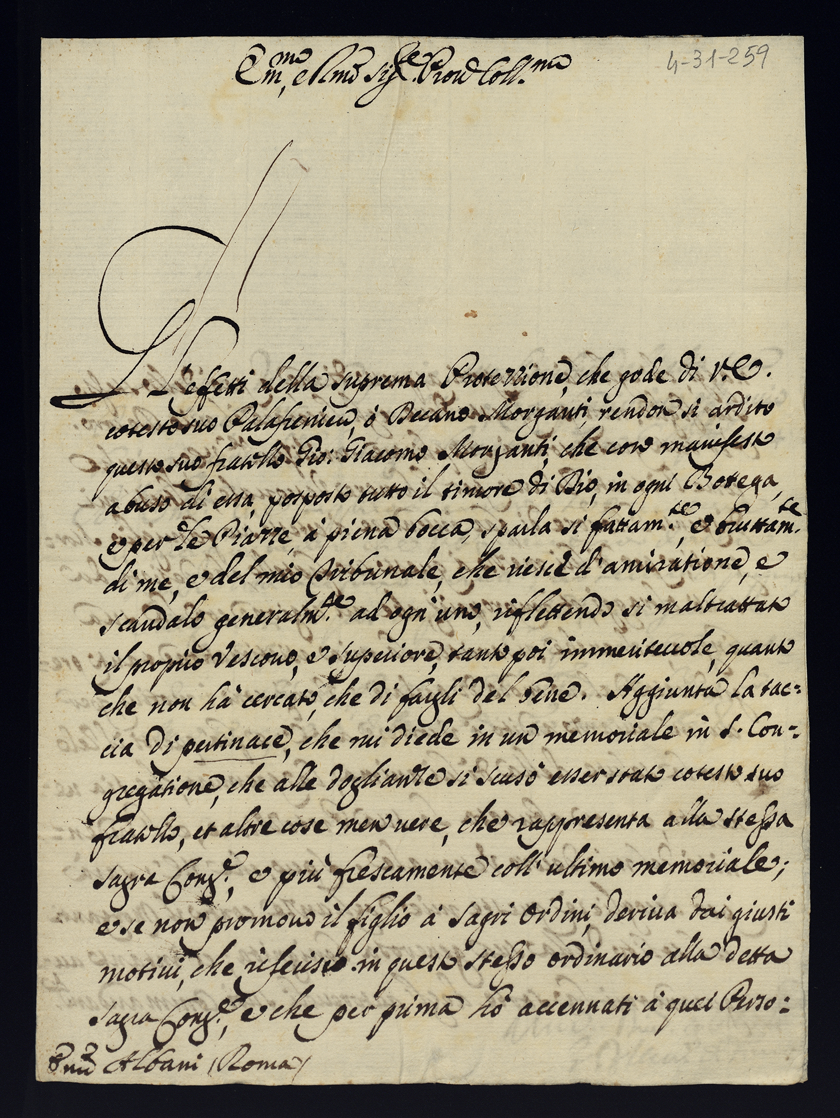 4-31-259
Em.mo, e Rmo Sig.re Prone Coll.mo
L'efetti della suprema Protezzione, che gode di V.E.
cotesto suo Palafenieu, ò Decano Morganti, rendon si ardito
questo suo fratello Gio: Giacomo Morganti, che con manifesto
abuso di essa, posposto tutto il timore di Dio, in ogni Bottega,
e per le Piazze, à piena bocca, sparla si fattam.te, e bruttam.te
di me, e del mio Tribunale, che riesce d'amiratione, e
scandalo generalm.te ad ogn'uno, riflettendo si maltrattato
il proprio Vescovo, e Superiore, tanto poi immeritevole, quanto
che non hà cercato, che di fargli del bene. Aggiunta la tac=
cia di pertinace, che mi diede in un memoriale in S. Con=
gregatione, che alle doglianze si scusò esser stato cotesto suo
fratello, et altre cose men vere, che rappresenta alla stessa
sagra Cong.e, e più frescamente coll'ultimo memoriale;
e se non promovo il figlio à sagri Ordini, deriva dai giusti
motivi, che riferisco in questo stesso ordinario alla detta
sagra Cong.e, e che per prima hò accennati à quel Perso=
Albani (Roma)